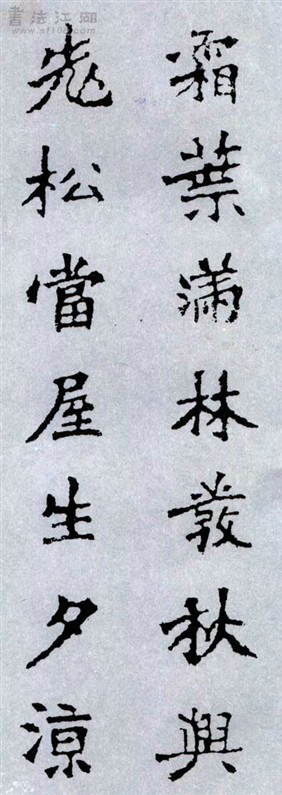 書法江湖
www.sf108.com
霜葉滿林發秋興
松當屋生夕涼